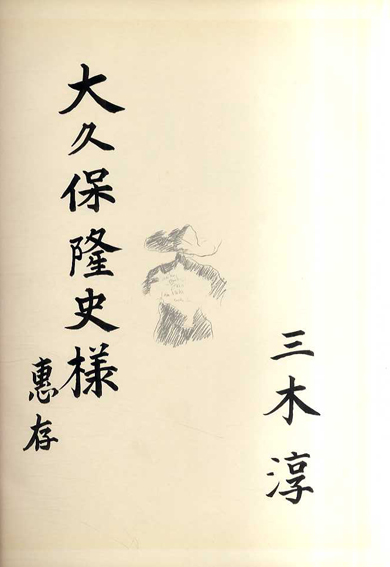 三木淳
大久保隆史様
惠存